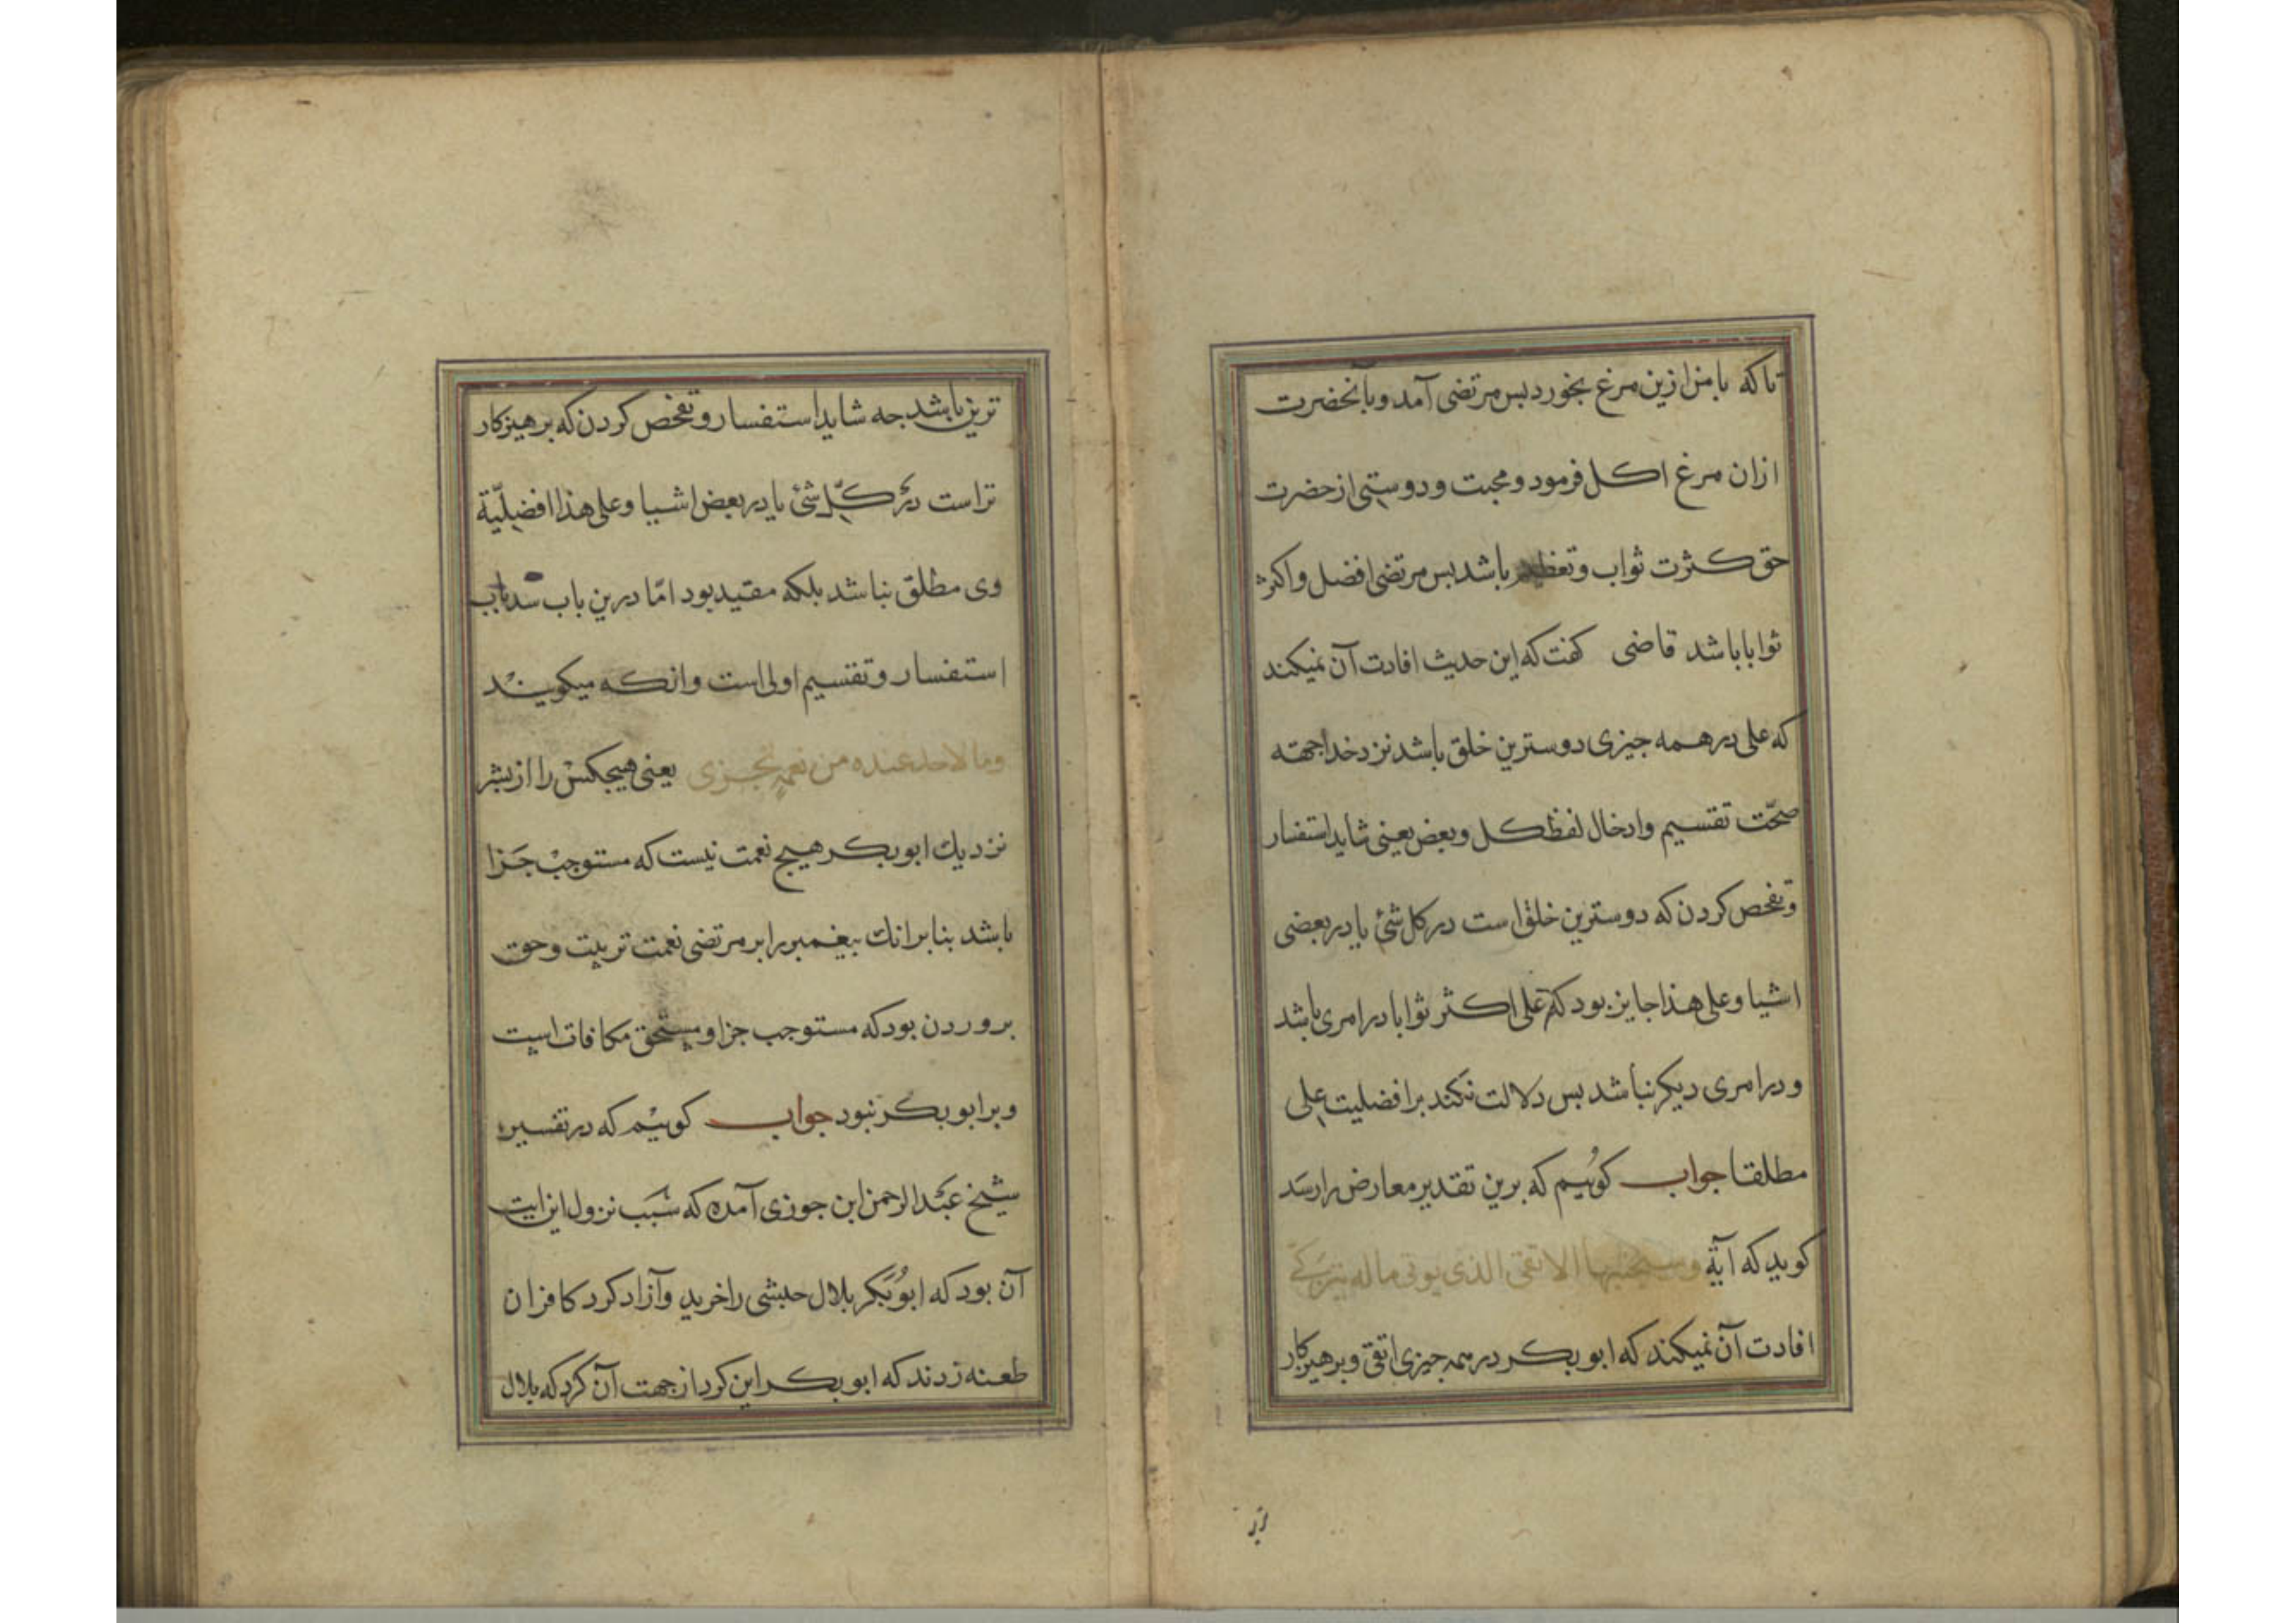 تا که با من ازین مرغ بخورد بس مرتضی آمد و با آنحضرت
ازان مرغ اکل فرمود و محبت و دوستی از حضرت
حق کثرت ثواب و تعظیم باشد بس مرتضی افضل و اکثر
ثوابا باشد قاضی کفت که این حدیث افادت آن نمیکند
که علی در همه جیزی دوسترین خلق باشد نزد خدا جهته
صحّت تقسیم و ادخال لفظ کل و بعض یعنی شاید استفسار
و تفحص کردن که دوسترین خلق است در کل شئ یا در بعضی
اشیا و علی هذا جایز بود که علی اکثر ثوابا در امری باشد
و در امری دیکر نباشد بس دلالت نکند بر افضلیت علی
مطلقا جواب کوئیم که برین تقدیر معارض را رسد
کوید که آیة وسیجنبها الاتقی الذی یوتی ماله یتزکی
افادت آن نمیکند که ابو بکر در همه جیزی اتقی و برهیزکار
تر
ترین باشد جه شاید استفسار و تفحص کردن که برهیزکار
تر است در کلّ شئ یا در بعض اشیا و علی هذا افضلیّة
وی مطلق نباشد بلکه مقید بود امّا درین باب سد باب
استفسار و تقسیم اولی است و انکه میکویند
وما لاحد عنده من نعمة تجزی یعنی هیجکس را از بشر
نزدیك ابو بکر هیج نعمت نیست که مستوجب جزا
باشد بنابر انك بیغمبر را بر مرتضی نعمت تربیت و حق
بروردن بود که مستوجب جزا و مستحق مکافات است
و بر ابو بکر نبود جواب کوئیم که در تفسیر
شیخ عبد الرحمن ابن جوزی آمده که سبب نزول این ایت
آن بود که ابو بکر بلال حبشی را خرید و آزاد کرد کافران
طعنه زدند که ابو بکر این کرد از جهت آن کرد که بلال